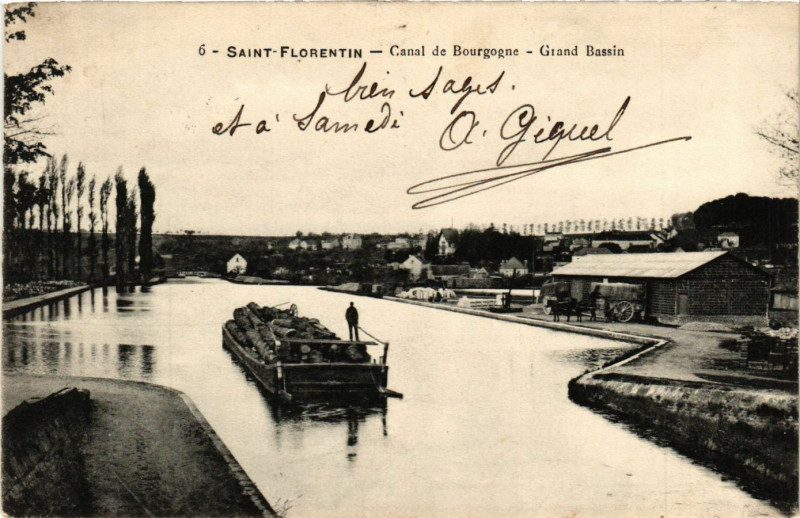 6 - SAINT-FLORENTIN — Canal de Bourgogne - Grand Bassin
bien sages.
et à Samedi A. Giquel